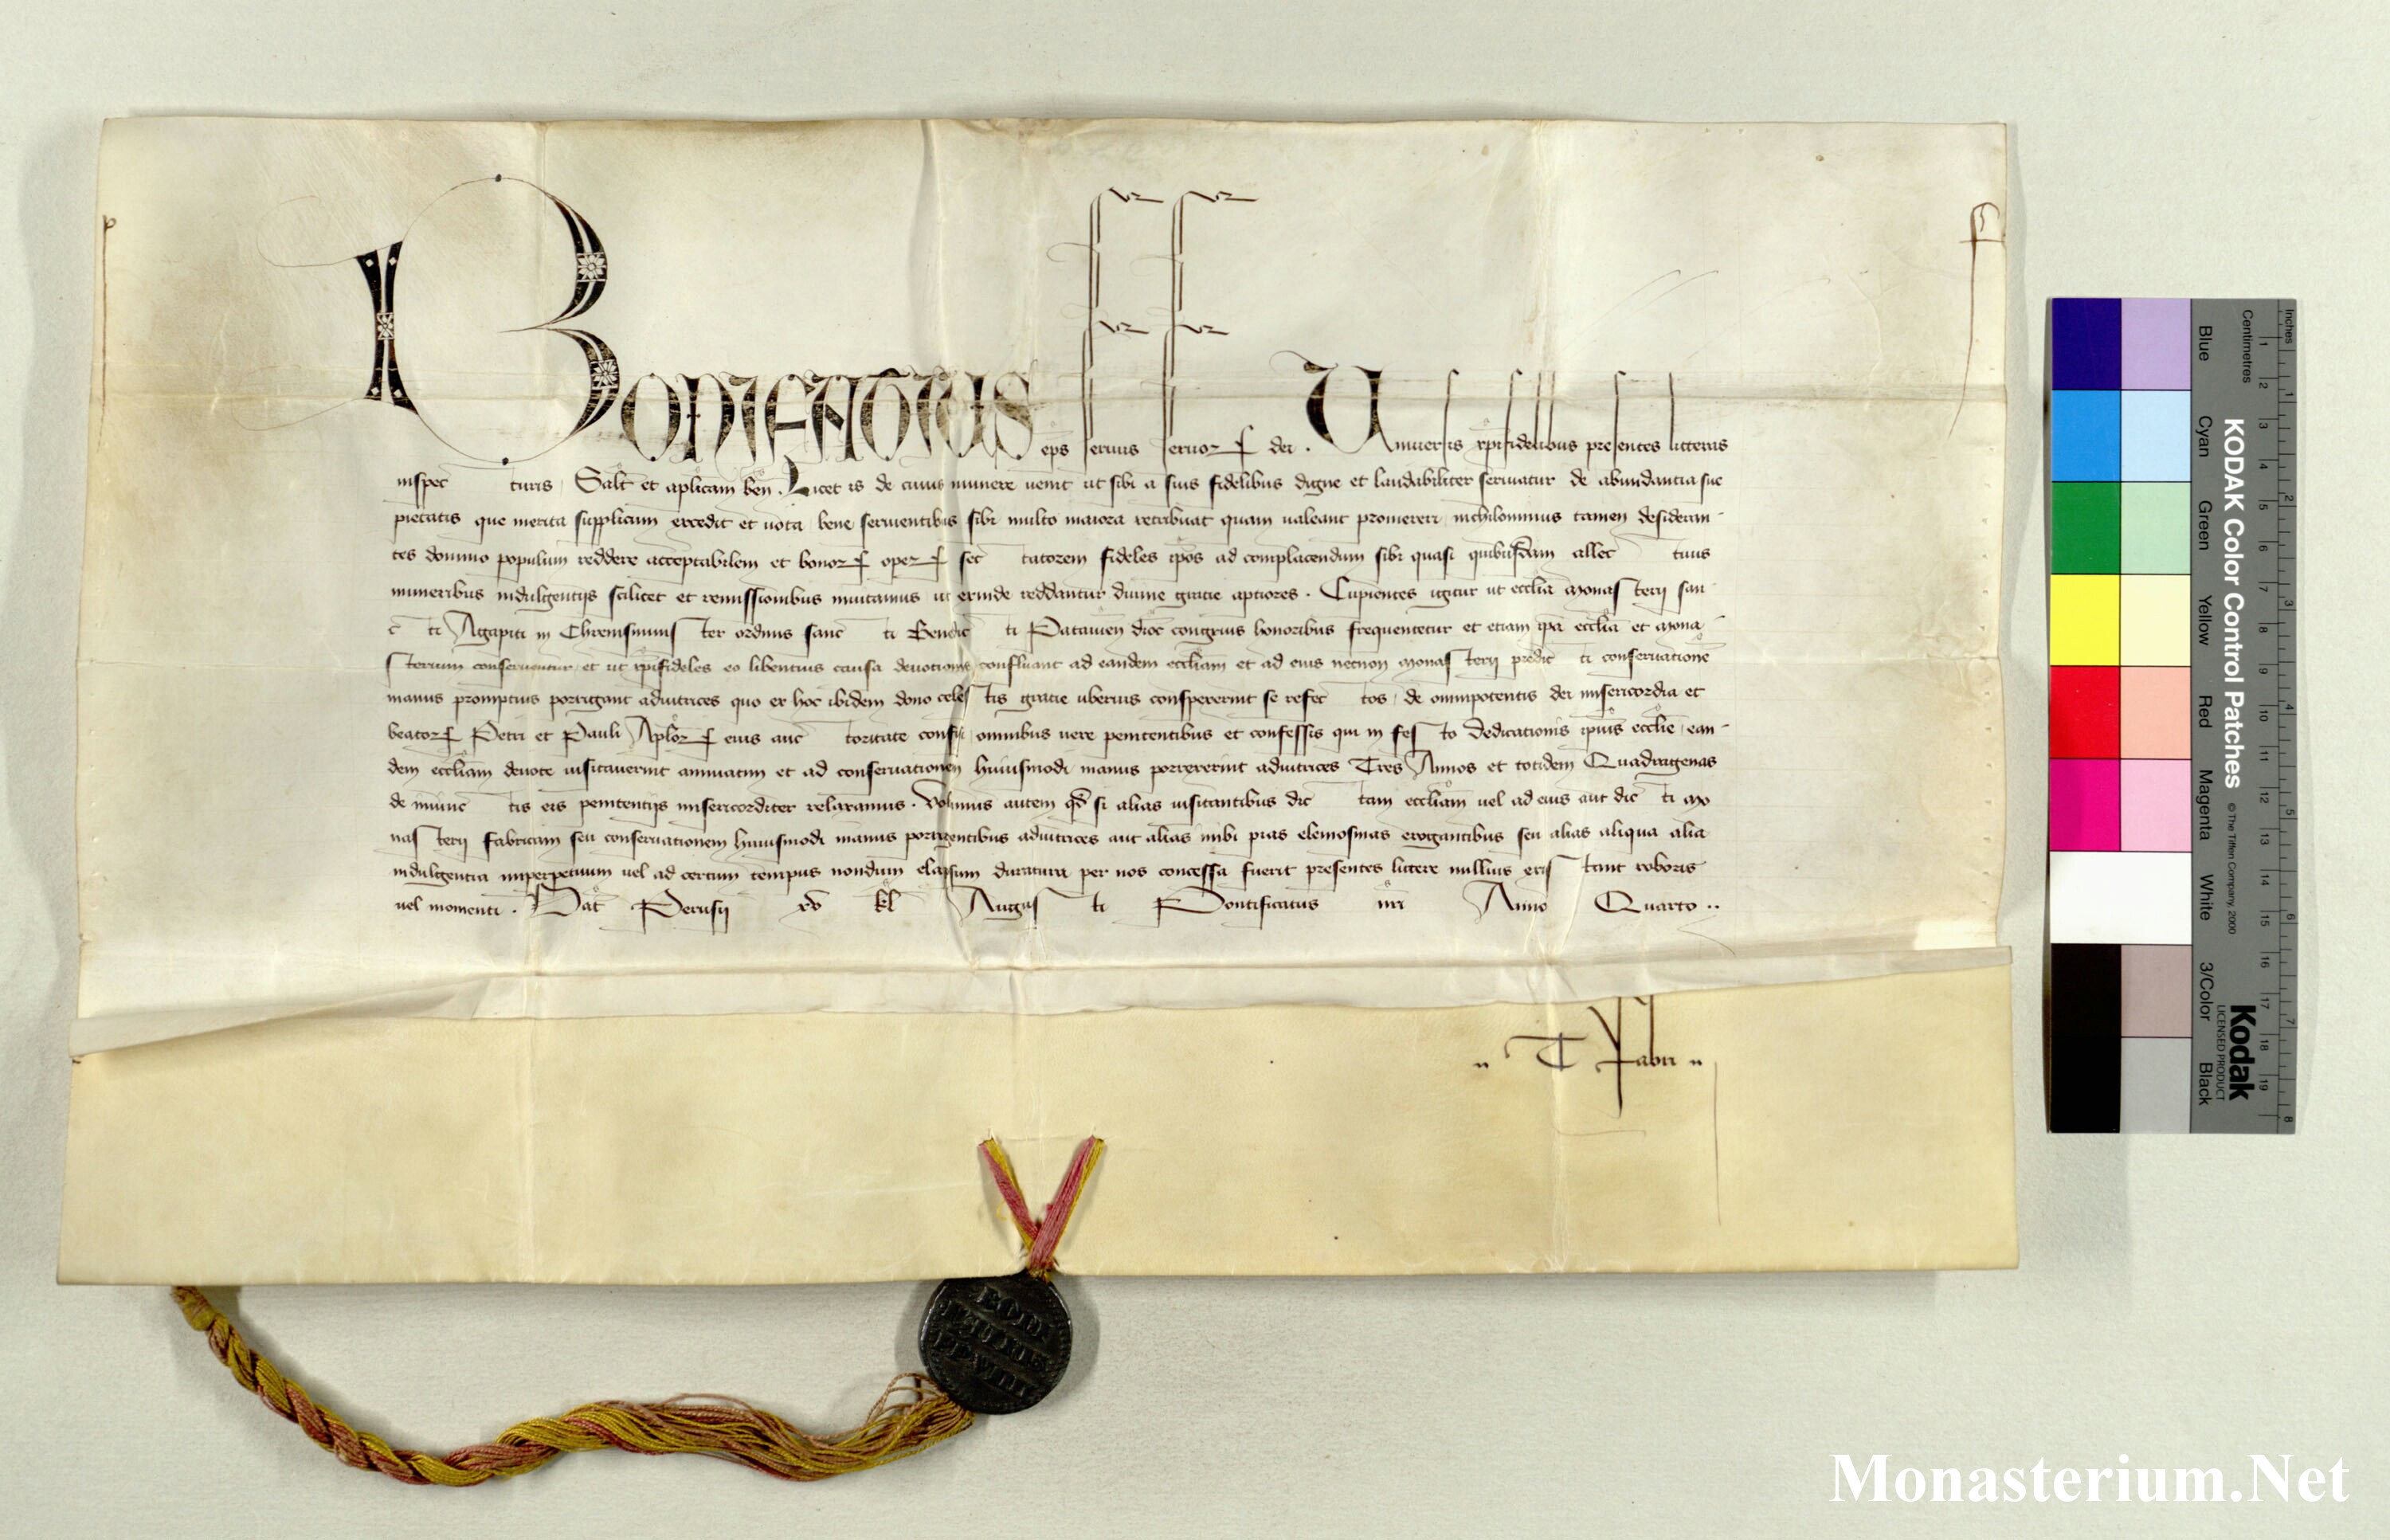 BONIFATIUS eps seruus seruoꝝ dei . Uniuersis xpifidelibus presentes litteras
inspecturis Salt et aplicam ben . Licet is de cuius munere uenit ut sibi a suis fidelibus digne et laudabiliter seruiatur de abundantia sue
pietatis que merita supplicum excedit et uota bene seruientibus sibi multo maiora retribuat quam ualeant promereri nichilominus tamen desideran-
tes domino populum reddere acceptabilem et bonoꝝ operꝝ sectatorem fideles xpos ad complacendum sibi quasi quibusdam allectiuis
muneribus indulgentijs scilicet et remissionibus inuitamus ut exinde reddantur diuine gratie aptiores . Cupientes igitur ut ecclia Monasterij san-
cti Agapiti in Chremsmunster ordinis sancti Bendicti Patauien dioc congruis honoribus frequentetur et etiam ipa ecclia et Mona-
sterium conseruentur et ut xpifideles eo libentius causa deuotionis confluant ad eandem eccliam et ad eius necnon Monasterij predicti conseruatione
manus promptius porrigant adiutrices quo ex hoc ibidem dono celestis gratie uberius conspexerint se refectos de omnipotentis dei misericordia et
beatoꝝ Petri et Pauli Aploꝝ eius auctoritate confisi omnibus uere penitentibus et confessis qui in festo dedicationis ipius ecclie ean-
dem eccliam deuote uisitauerint annuatim et ad conseruationem huiusmodi manus porrexerint adiutrices Tres Annos et totidem Quadragenas
de iniunctis eis penitentijs misericorditer relaxamus . Volumus autem qd si alias uisitantibus dictam eccliam uel ad eius aut dicti Mo
nasterij fabricam seu conseruationem huiusmodi manus porrigentibus adiutrices aut alias inibi pias elemosinas erogantibus seu alias aliqua alia
indulgentia imperpetuum uel ad certum tempus nondum elapsum duratura per nos concessa fuerit presentes littere nullius existant roboris
uel momenti . Dat Perusij xv kl Augusti Pontificatus nri Anno Quarto ..
T Fabri
BONI
FATIUS
PP VIIII
Inches
Centimetres
KODAK Color Control Patches © The Tiffen Company, 2000
Kodak
LICENSED PRODUCT
Blue Cyan Green Yellow Red Magenta White 3/Color Black
1 2 3 4 5 6 7 8 9 10 11 12 13 14 15 16 17 18 19
1 2 3 4 5 6 7 8
Monasterium.Net